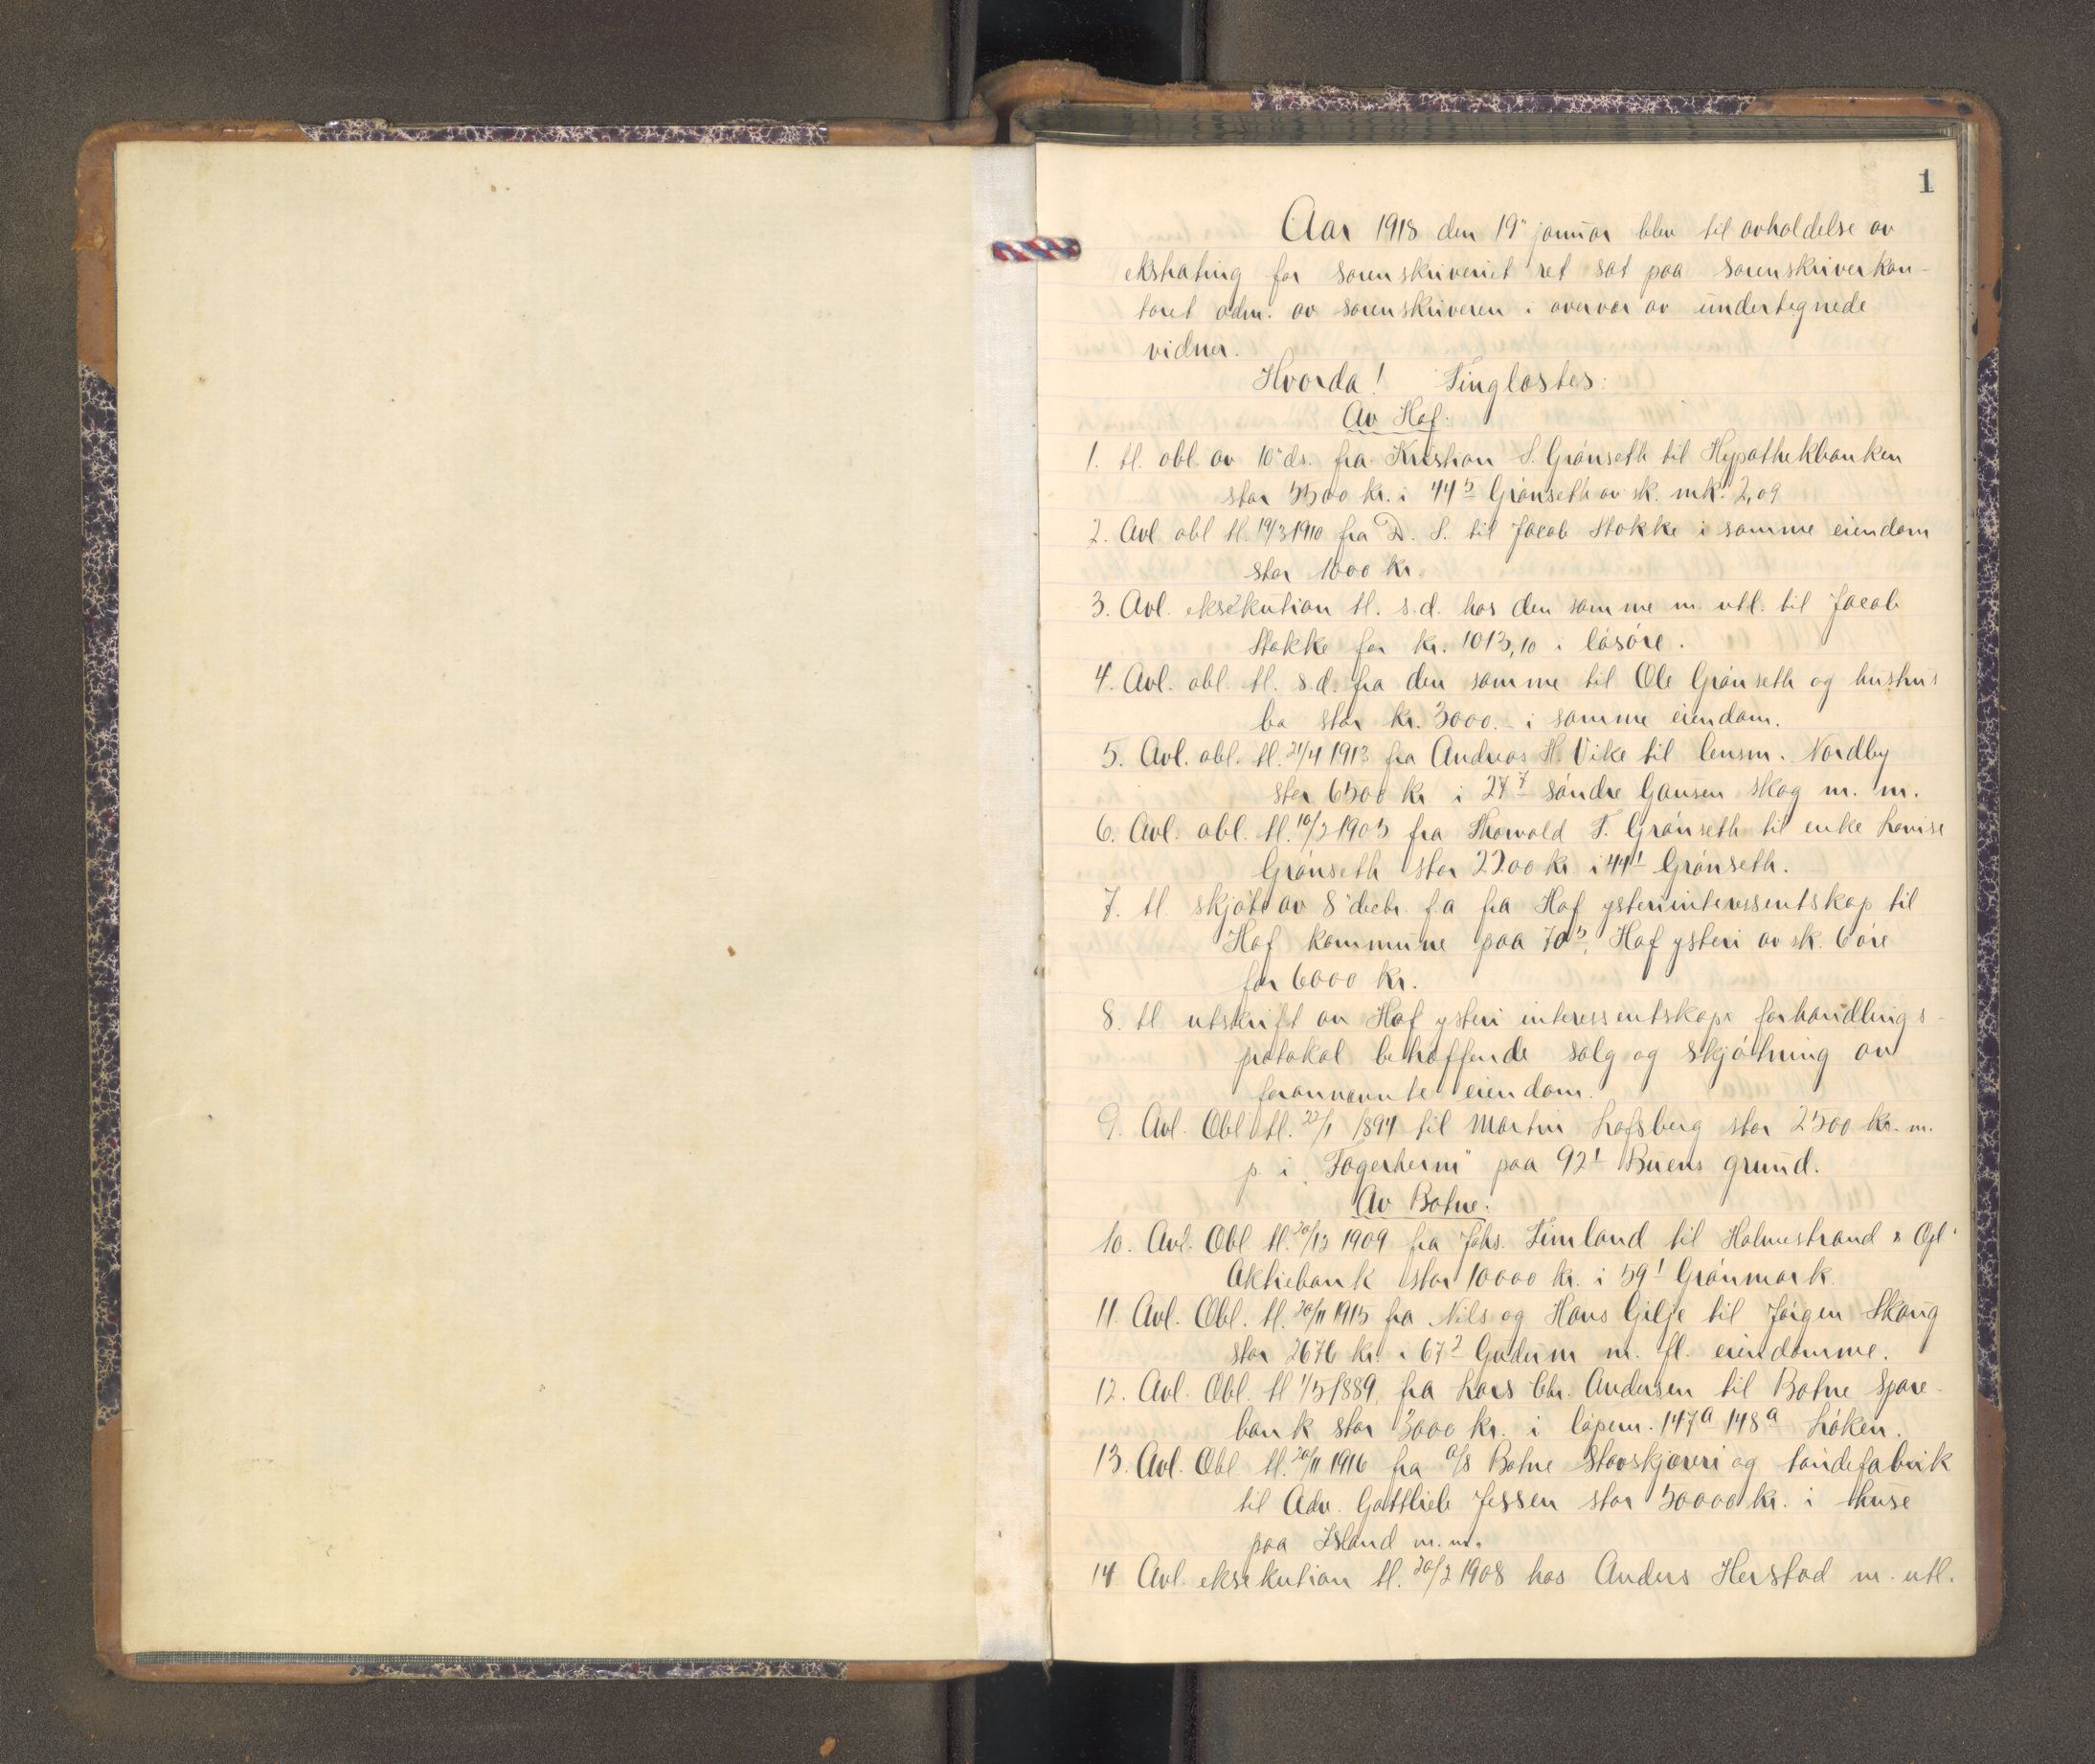 1
Aar 1918 den 19" januar blev til avholdelse av
ekstrating for sorenskriveriet ret sat paa sorenskriverkon-
toret adm. av sorenskriveren i overvær av undertegnede
vidner.
Hvorda! Tinglæstes:
Av Hof:
1. tl. obl. av 10" ds. fra Kristian S. Grönseth til Hypothekbanken
stor 5500 kr. i 44⁵ Grönseth av sk. mk. 2,09
2. Avl. obl tl. 19/3 1910 fra D. S. til Jacob Stokke i samme eiendom
stor 1000 kr.
3. Avl. eksekution tl. s.d. hos den samme m. utl. til Jacob
Stokke for kr. 1013,10 i lösöre.
4. Avl. obl. tl. s.d. fra den samme til Ole Grönseth og hustru
stor kr. 3000.- i samme eiendom.
5. Avl. obl. tl. 21/4 1913 fra Andreas H. Vike til lensm. Nordby
stor 6500 kr i 27⁷ söndre Gausen skog m. m.
6. Avl. obl. tl. 10/2 1905 fra Thorvald T. Grönseth til enke Lovise
Grönseth stor 2200 kr i 44¹ Grönseth.
7. tl. skjöte av 8" decbr. f.a fra Hof ysteriinteressentskap til
Hof kommune paa 70⁵, Hof ysteri av sk. 6 öre
for 6000 kr.
8. tl utskrift av Hof ysteri interessentskaps forhandlings-
protokol betræffende salg og skjötning av
forannævnte eiendom.
9. Avl. Obl tl. 22/1 1894 til Martin Lofsberg stor 2500 kr. m.
p. i "Fagerheim" paa 92¹ Buens grund.
Av Botne:
10. Avl. Obl tl. 20/12 1909 fra Johs. Timland til Holmestrand & Opl'
Aktiebank stor 10000 kr. i 59¹ Grönmark.
11. Avl. Obl. tl. 20/11 1915 fra Nils og Hans Gilje til Jörgen Skaug
stor 2676 kr. i 67² Gudum m. fl. eiendomme.
12. Avl. Obl. tl 1/5 1889 fra Lars Chr. Andersen til Botne Spare-
bank stor 3000 kr. i löpenr. 147a 148a Löken.
13. Avl. Obl tl. 20/11 1916 fra a/s Botne Stavskjæreri og töndefabrik
til Adv. Gottlieb Jessen stor 50000 kr. i huse
paa Island m.m.
14 Avl. eksekution tl. 20/2 1908 hos Anders Herstad m. utl.